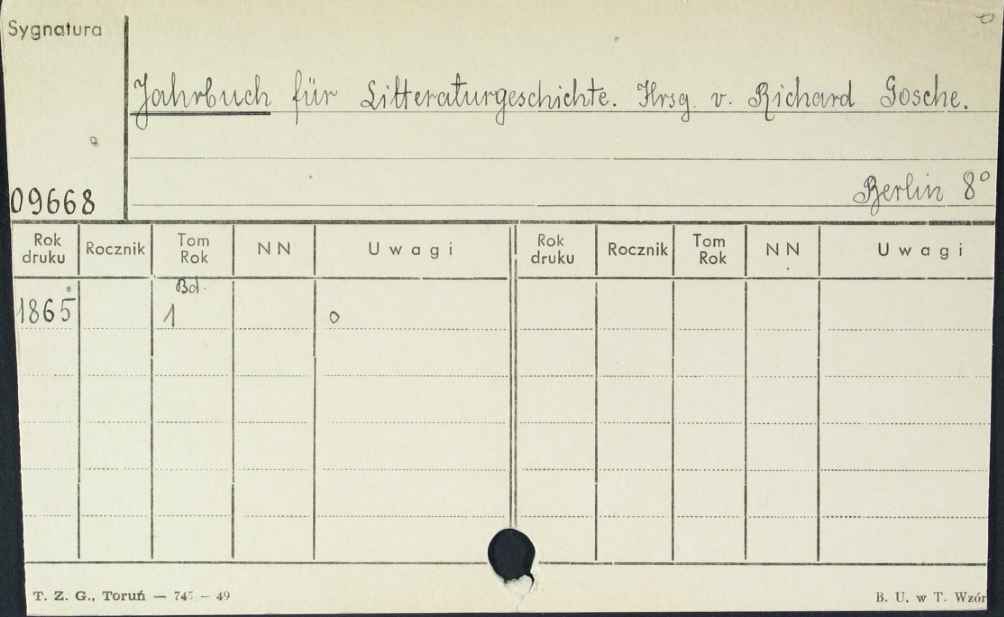 Sygnatura
Jahrbuch für Litteraturgeschichte. Hrsg. v. Richard Gosche.
09668
Berlin 8°
Rok druku Rocznik Tom Rok NN Uwagi Rok druku Rocznik Tom Rok NN Uwagi
Bd.
1865 1 o
T. Z. G., Toruń — 745 — 49
B. U. w T. Wzór